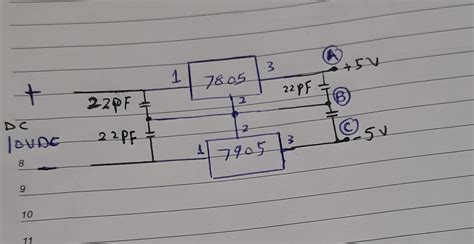 A
+5V
+
1
7805
3
22PF
22PF
2
B
DC
10VDC
22PF
2
C
-5V
1
7905
3
8
9
10
11